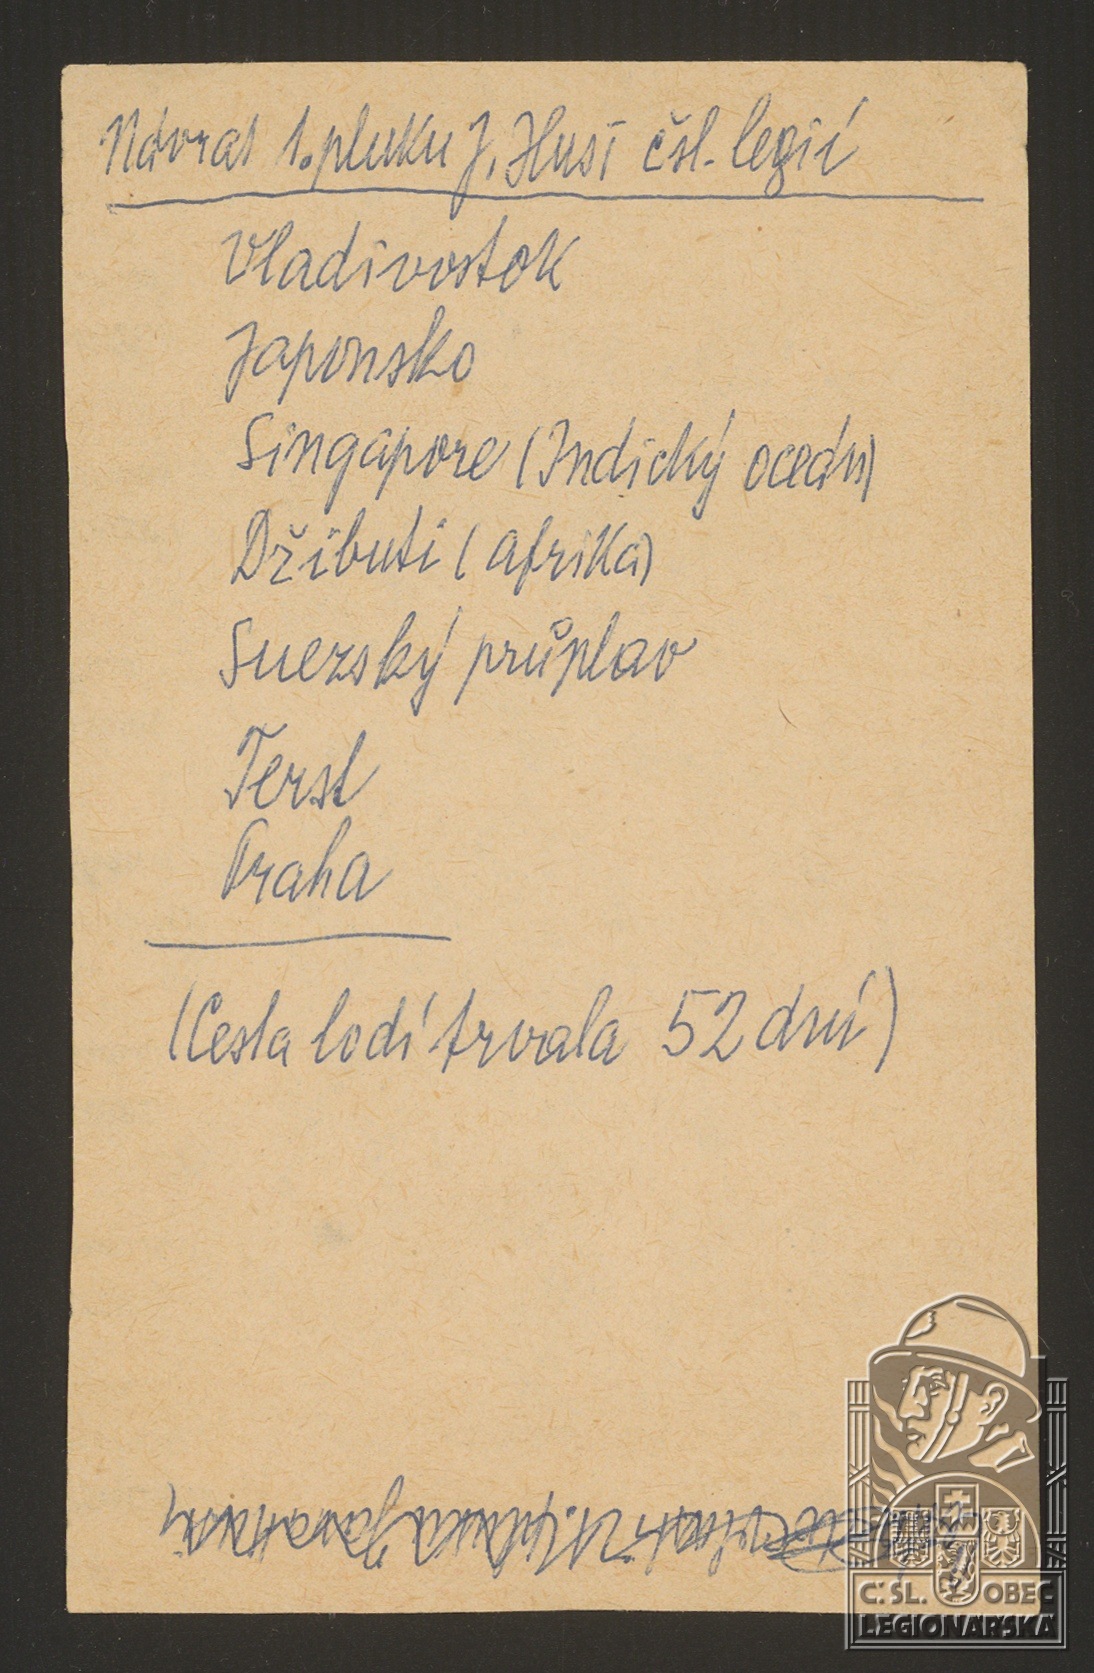 Návrat 1. pluku J. Husi čsl. legií
Vladivostok
Japonsko
Singapore (Indický oceán)
Džibuti (afrika)
Suezský průplav
Terst
Praha
(Cesta lodí trvala 52 dní)
Č. SL. OBEC
LEGIONÁŘSKÁ